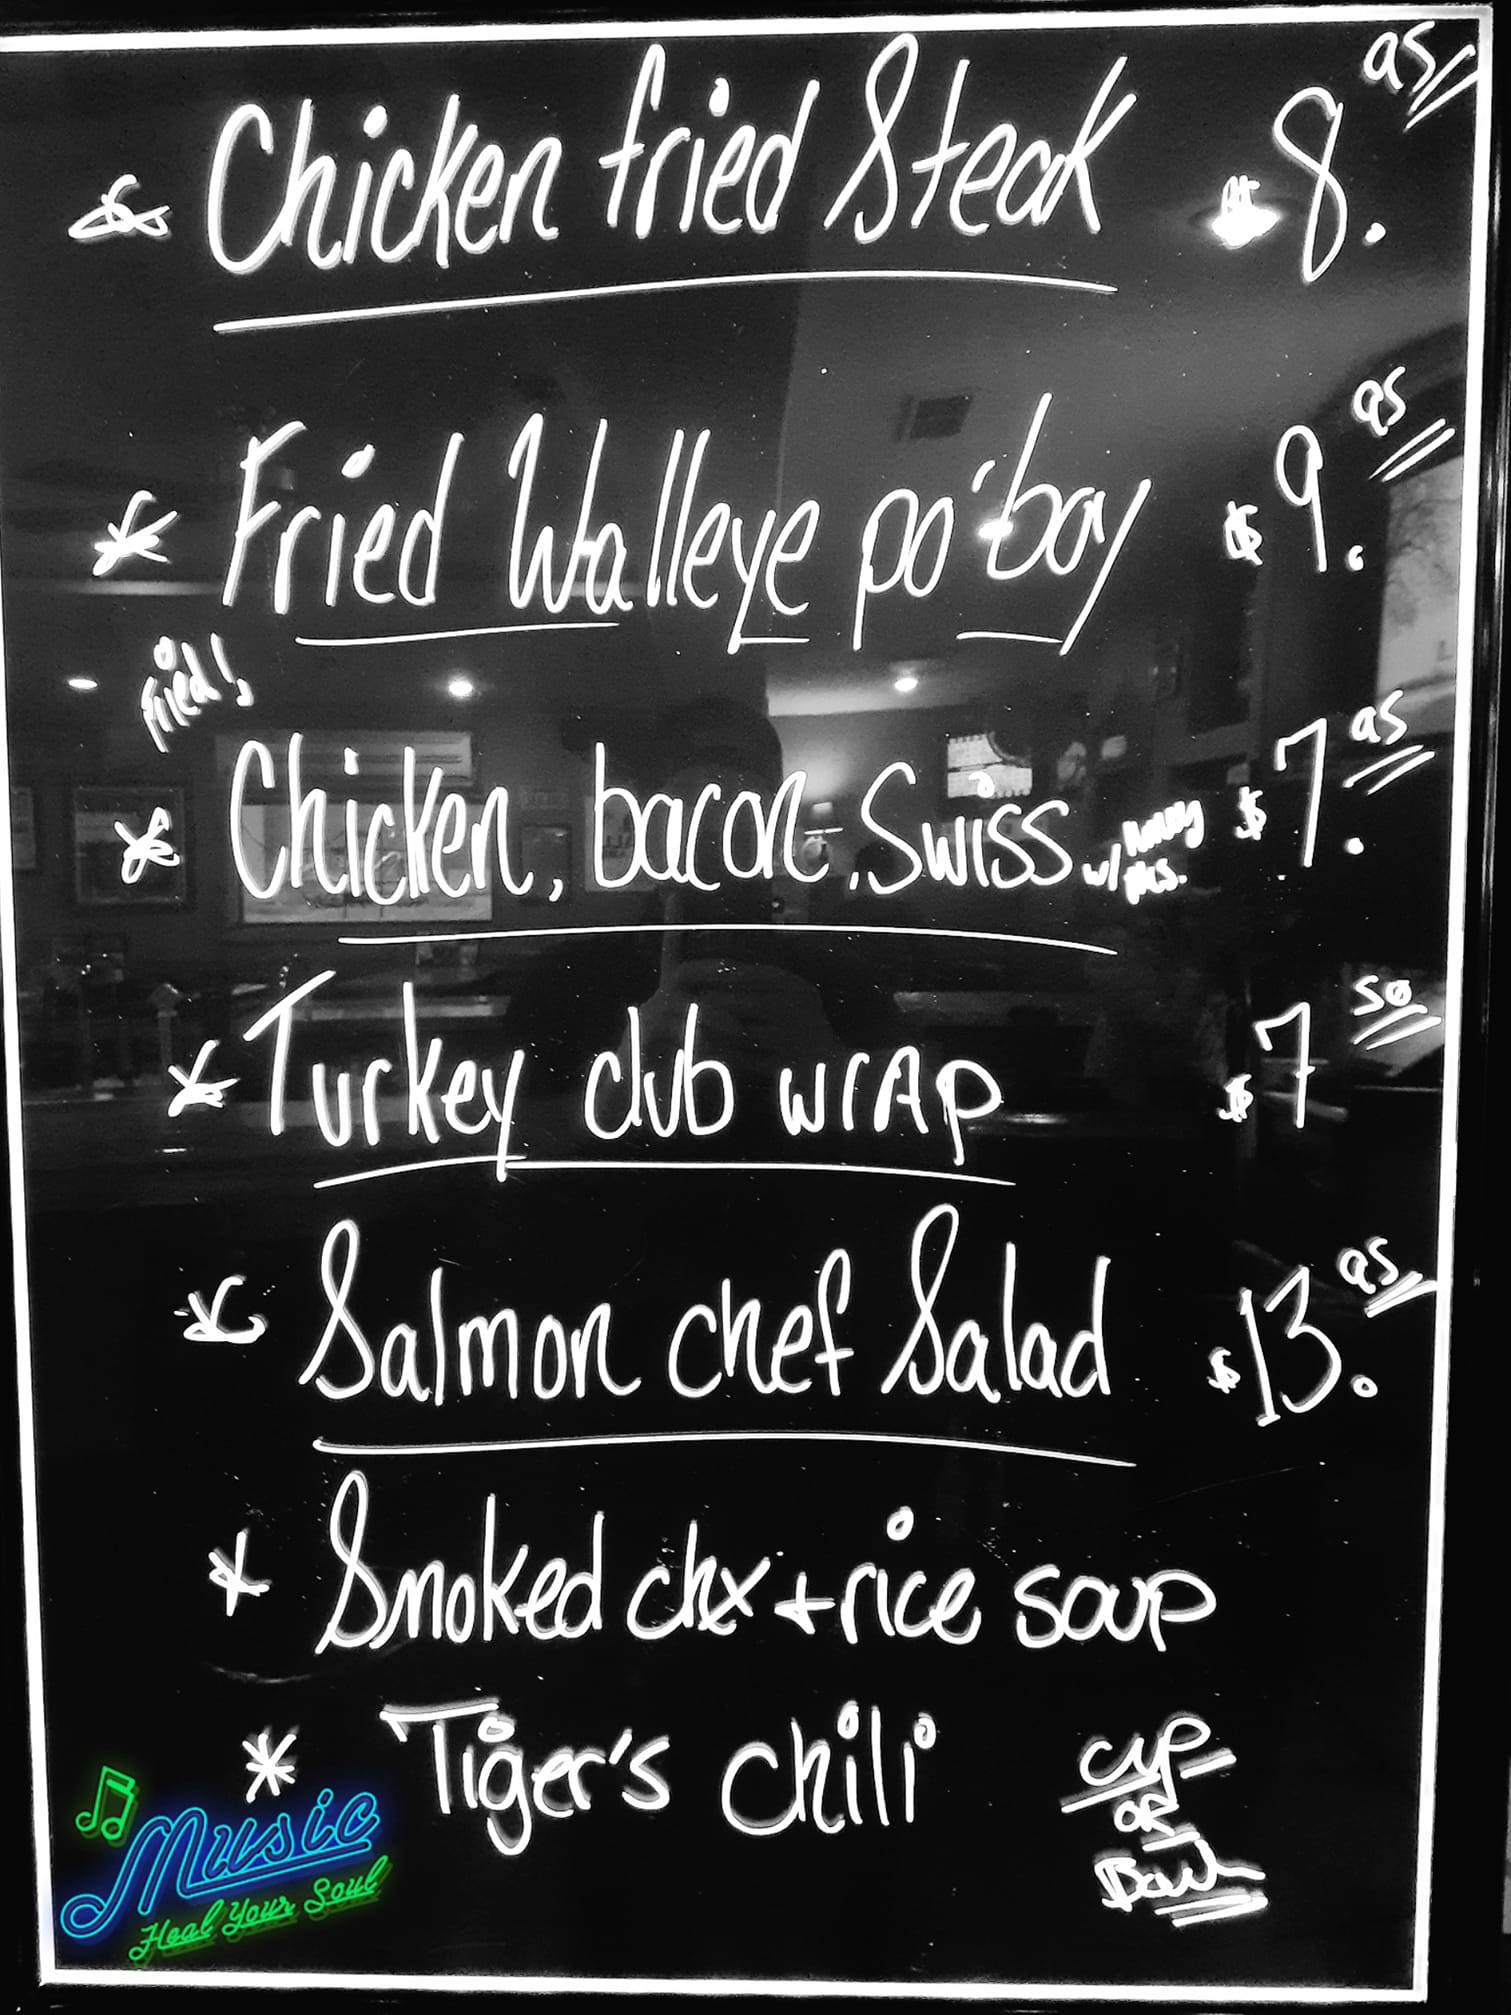 * Chicken fried Steak $8.95
* Fried Walleye po'boy $9.95
Fried!
* Chicken, bacon, Swiss w/ honey $7.95
* Turkey club wrap $7 50
* Salmon chef Salad $13.95
* Smoked chx + rice soup
* Tiger's chili
cup
or
Bowl
Music
Heal Your Soul